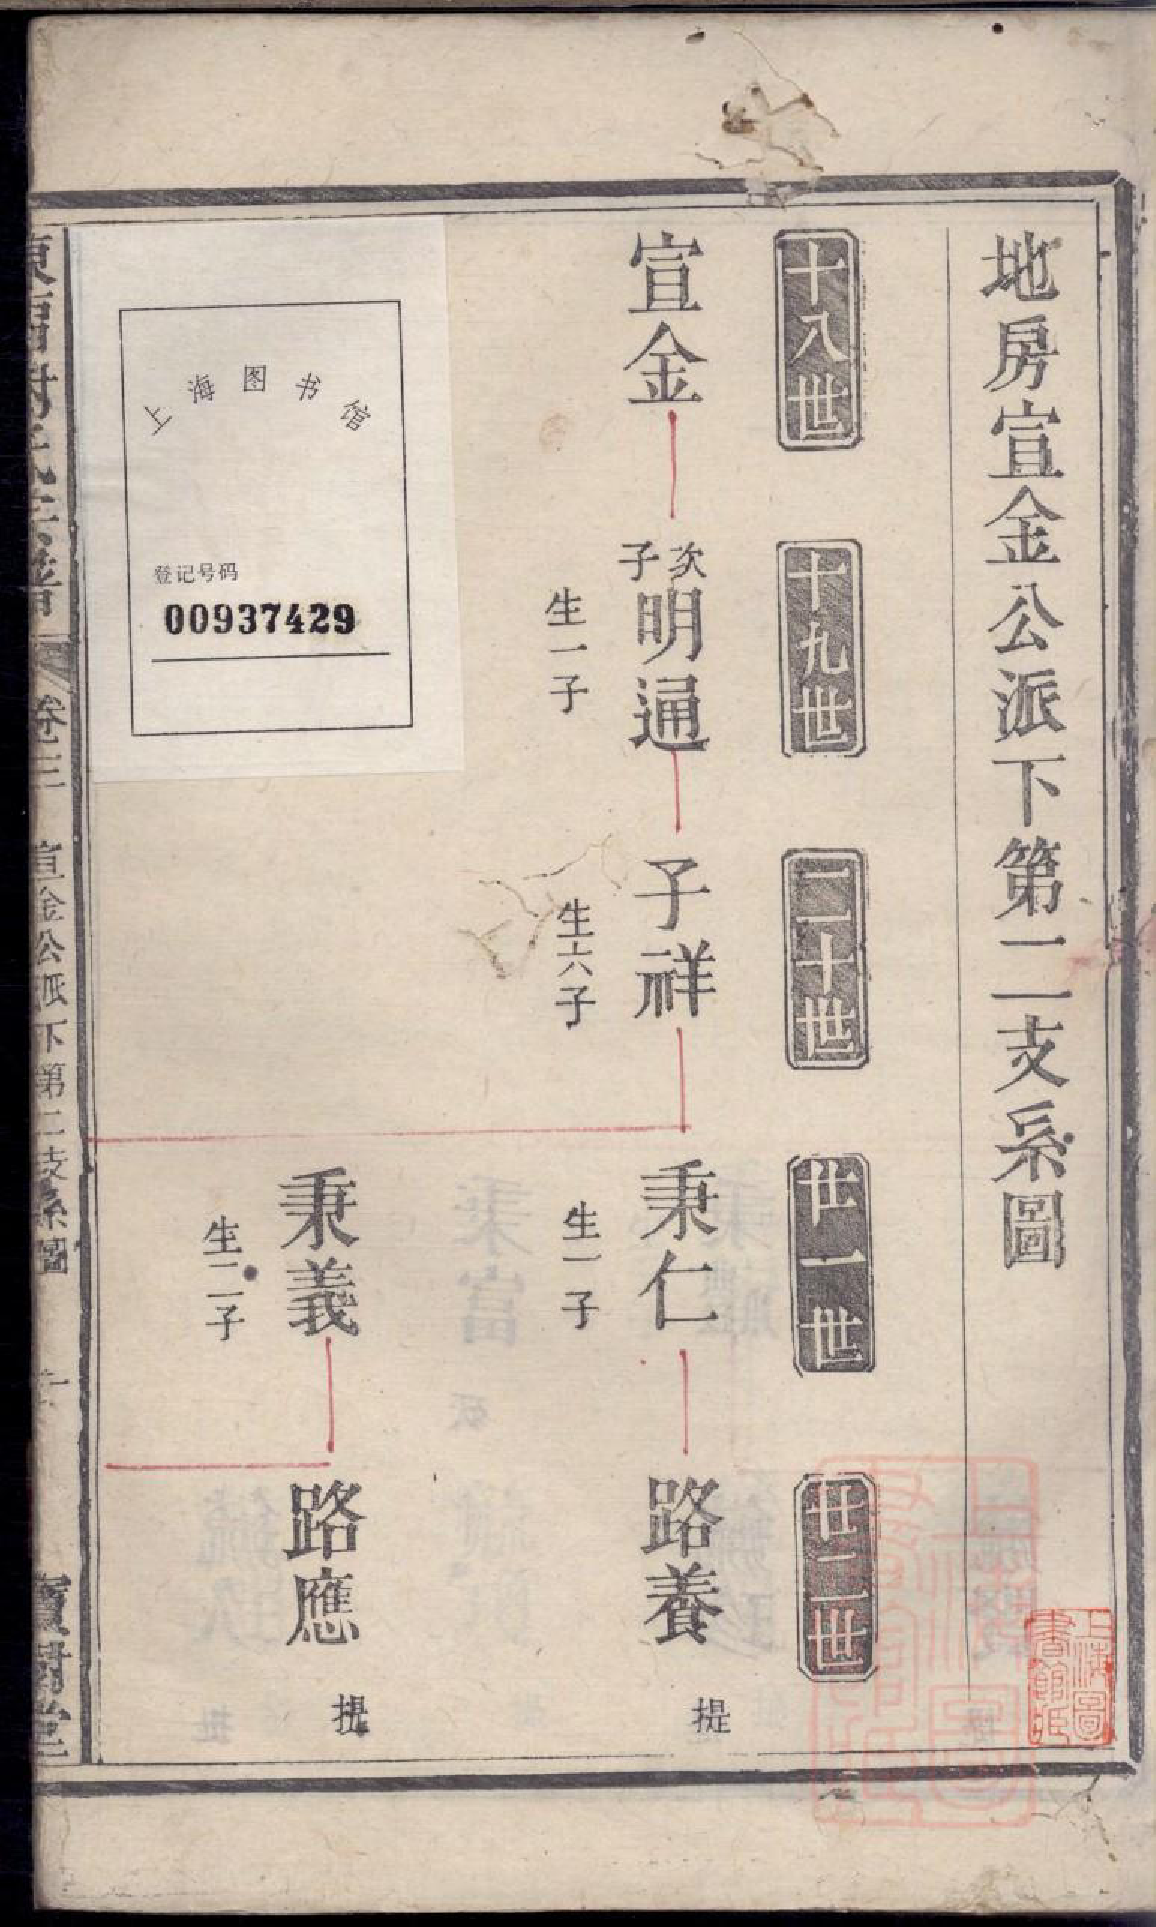 地房宣金公派下第二支系圖
十八世
十九世
二十世
廿一世
廿二世
宣金
次子
明通
生一子
子祥
生六子
秉仁
生一子
路養
提
秉義
生二子
路應
提
上海图书馆
登记号码
00937429
卷三
宣金公派下第二支系圖
寶樹堂
上海圖書館藏